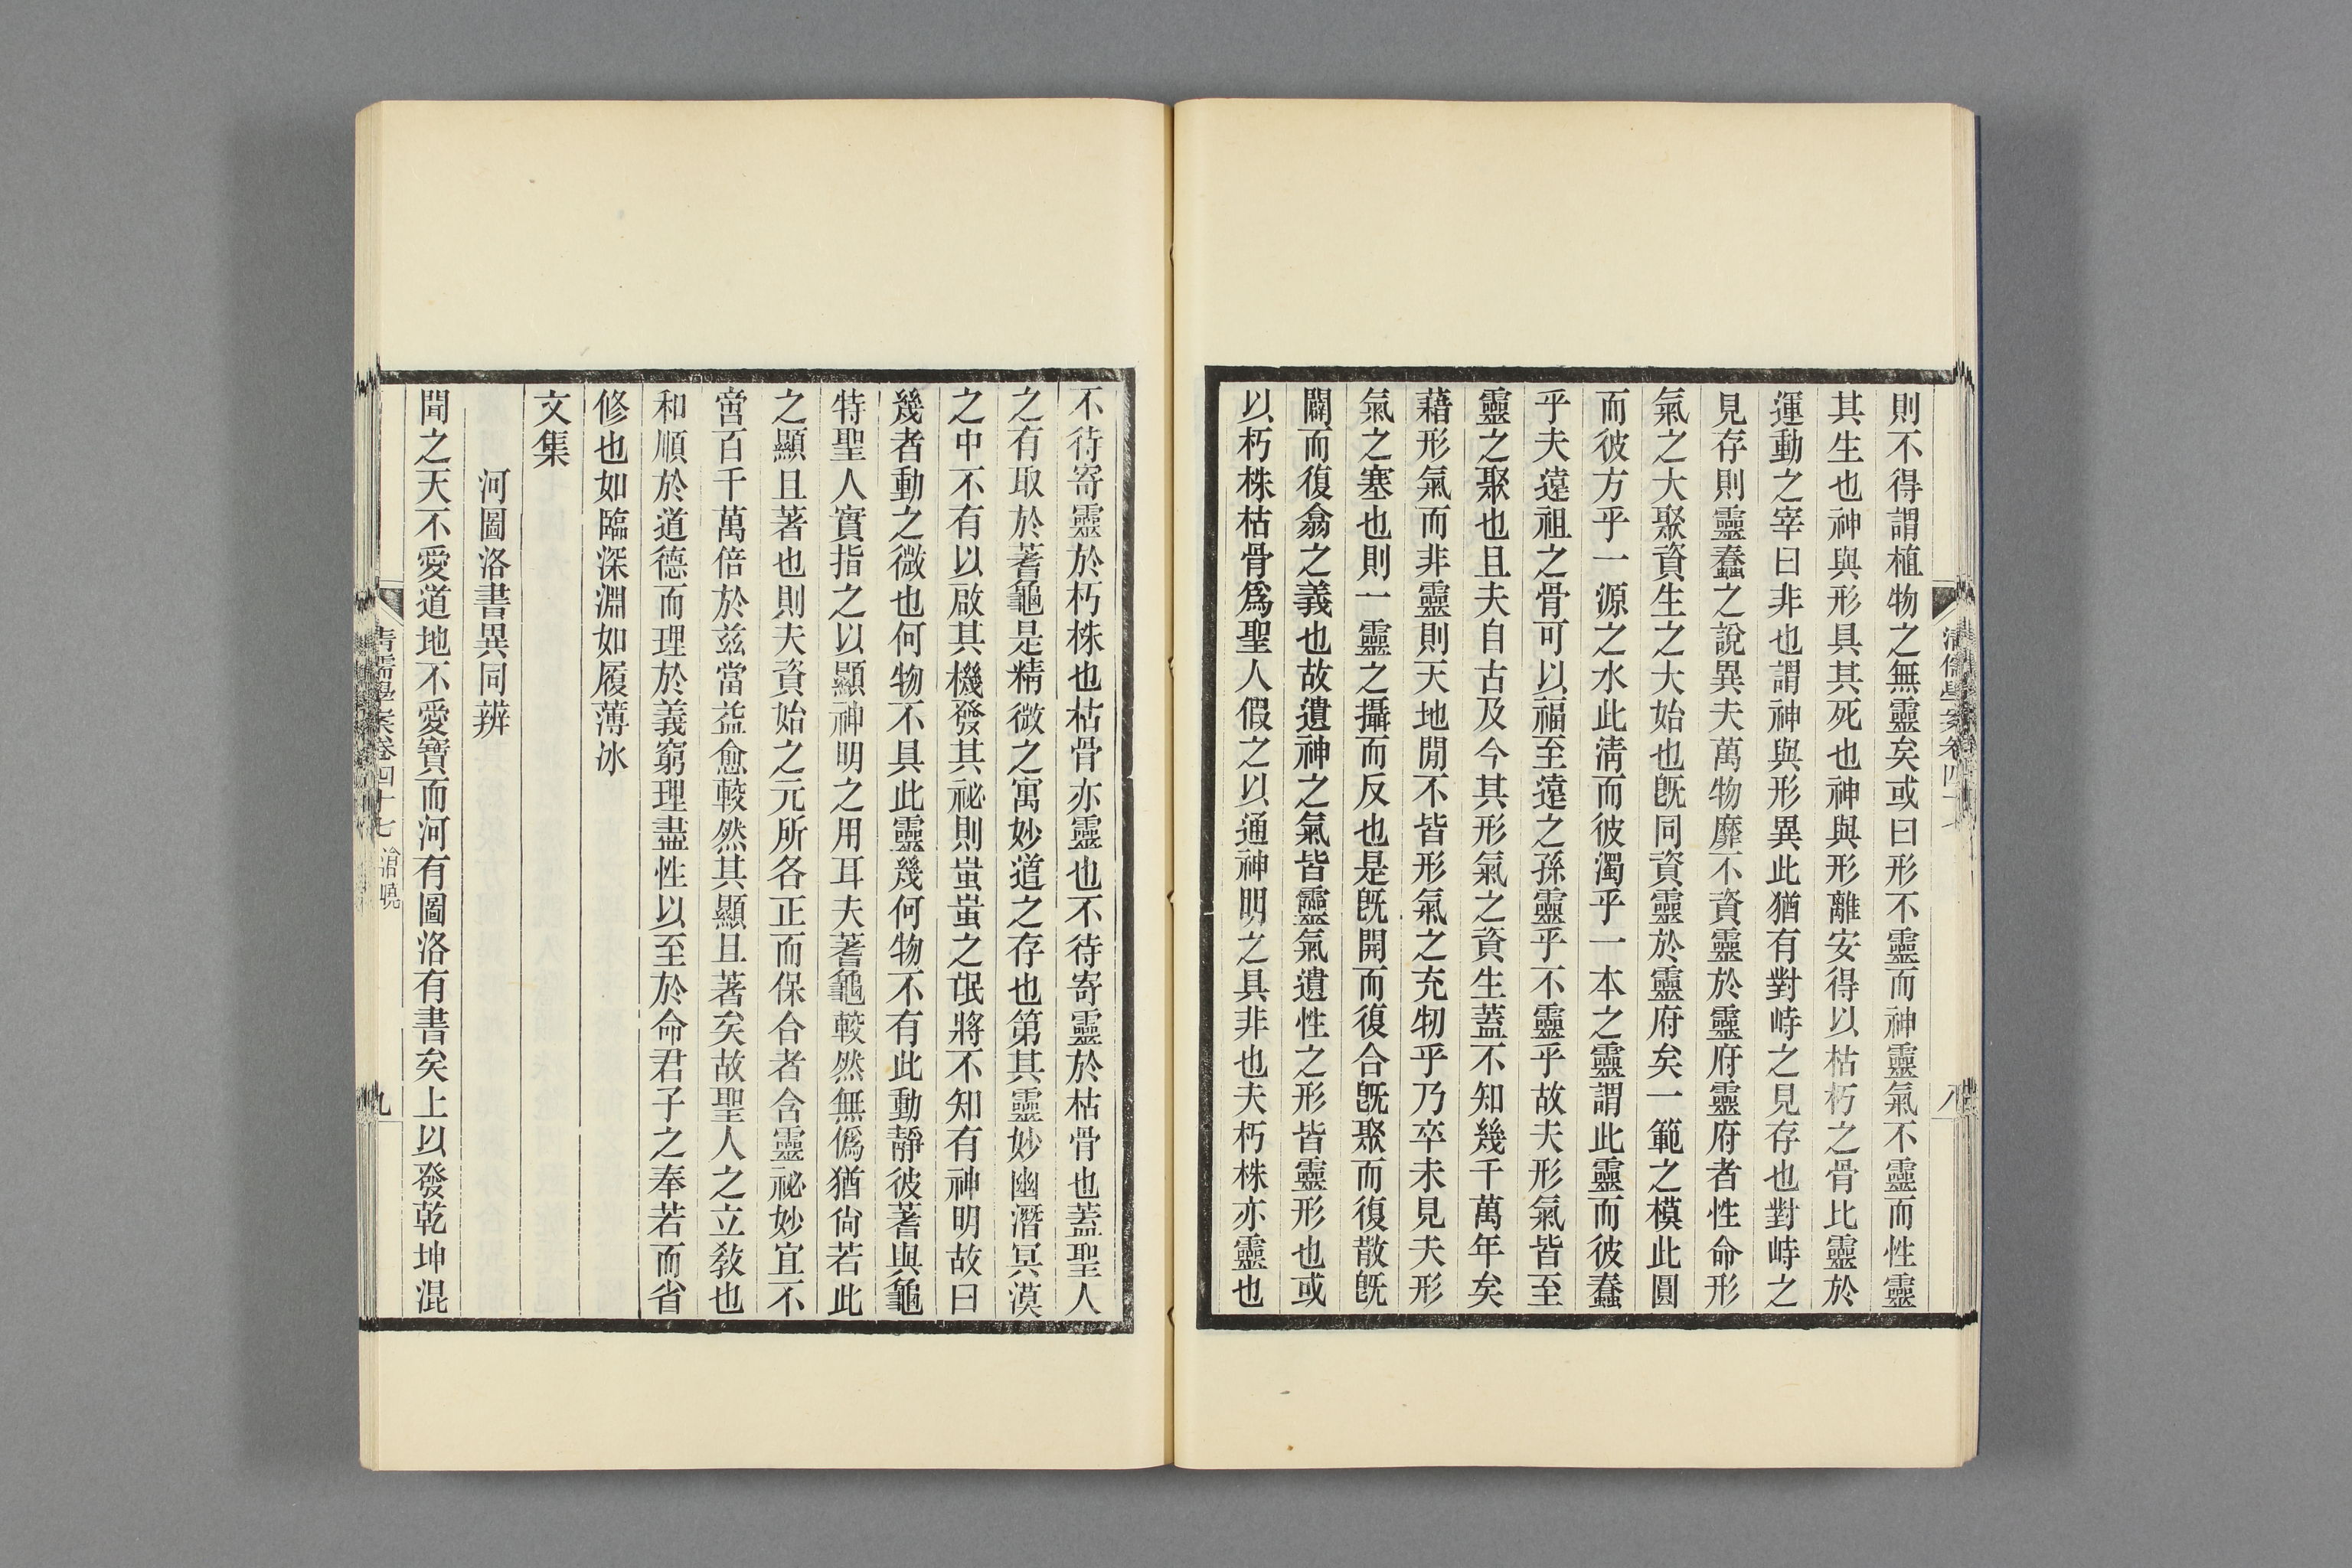 則不得謂植物之無靈矣或曰形不靈而神靈氣不靈而性靈
其生也神與形具其死也神與形離安得以枯朽之骨比靈於
運動之宰曰非也謂神與形異此猶有對峙之見存也對峙之
見存則靈蠢之說異夫萬物靡不資靈於靈府靈府者性命形
氣之大聚資生之大始也旣同資靈於靈府矣一範之模此圓
而彼方乎一源之水此淸而彼濁乎一本之靈謂此靈而彼蠢
乎夫遠祖之骨可以福至遠之孫靈乎不靈乎故夫形氣皆至
靈之聚也且夫自古及今其形氣之資生蓋不知幾千萬年矣
藉形氣而非靈則天地閒不皆形氣之充牣乎乃卒未見夫形
氣之塞也則一靈之攝而反也是旣開而復合旣聚而復散旣
闢而復翕之義也故遺神之氣皆靈氣遺性之形皆靈形也或
以朽株枯骨爲聖人假之以通神明之具非也夫朽株亦靈也
不待寄靈於朽株也枯骨亦靈也不待寄靈於枯骨也蓋聖人
之有取於蓍龜是精微之寓妙道之存也第其靈妙幽潛冥漠
之中不有以啟其機發其祕則蚩蚩之氓將不知有神明故曰
幾者動之微也何物不具此靈幾何物不有此動靜彼蓍與龜
特聖人實指之以顯神明之用耳夫蓍龜較然無僞猶尙若此
之顯且著也則夫資始之元所各正而保合者含靈祕妙宜不
啻百千萬倍於兹當益愈較然其顯且著矣故聖人之立敎也
和順於道德而理於義窮理盡性以至於命君子之奉若而省
修也如臨深淵如履薄冰
文集
河圖洛書異同辨
聞之天不愛道地不愛寶而河有圖洛有書矣上以發乾坤混
清儒學案卷四十七 滄曉
九